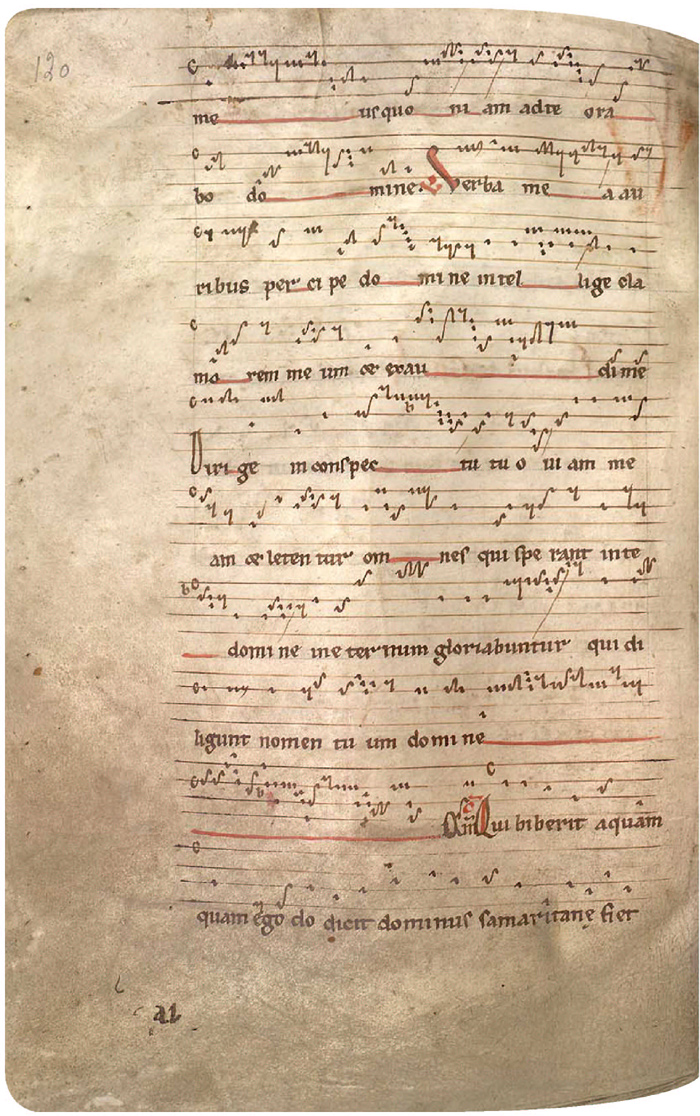 120
me usquo ni am ad te ora
bo do mine. Verba me a au
ribus per ci pe do mi ne in tel lige cla
mo rem me um et exau di me
Diri ge in conspec tu tu o ui am me
am et leten tur om nes qui spe rant in te
domi ne in e ter num gloriabuntur qui di
ligunt nomen tu um do mi ne
Qui biberit aquam
quam ego do dicit dominus samaritane fiet